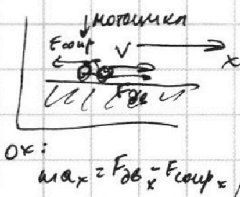 мотоцикл
Fсопр V x
Fдв
OX:
max = Fдвx - Fсопрx,